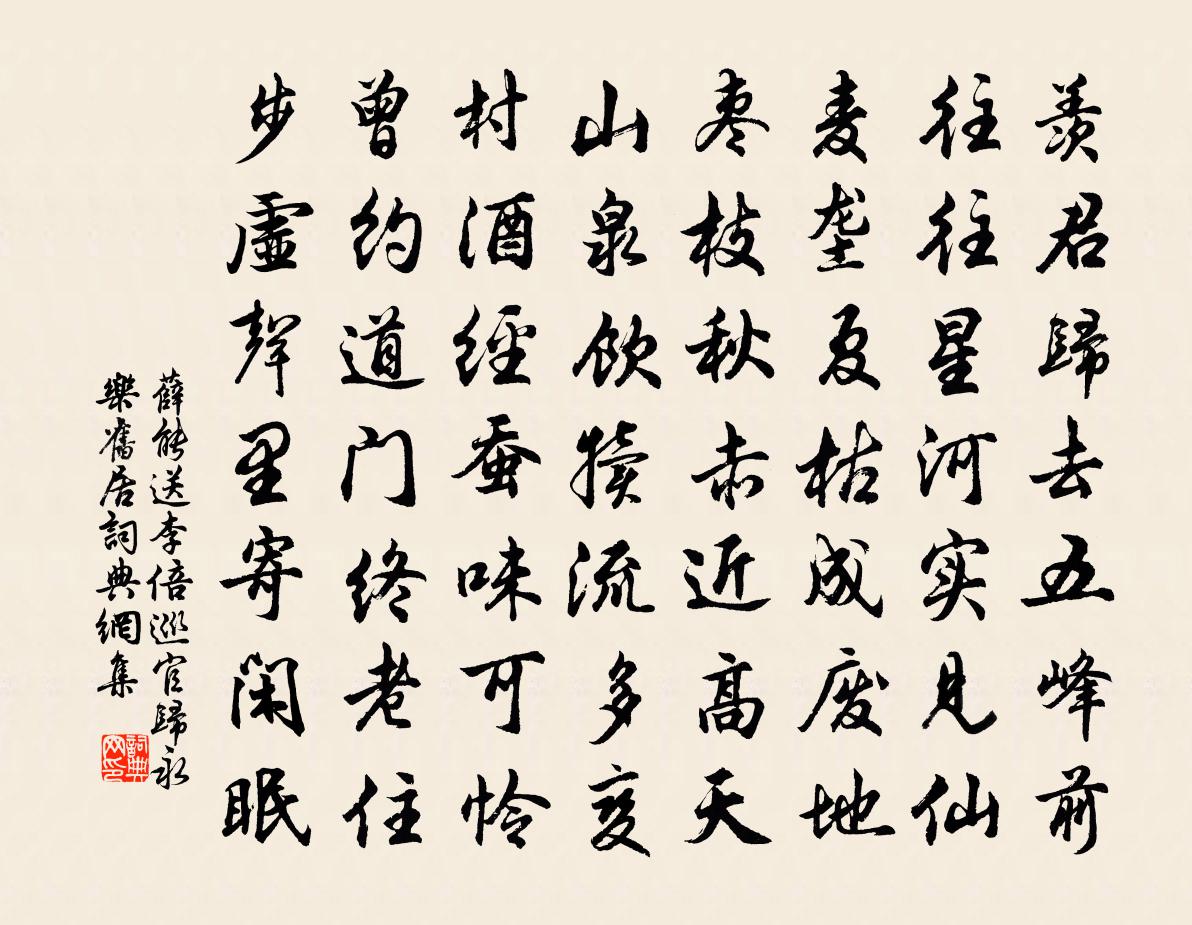 羨君歸去五峰前
往往星河实見仙
麦垄夏枯成废地
枣枝秋赤近高天
山泉飲犢流多变
村酒經蚕味可怜
曾约道门终老住
步虛聲里寄閑眠
薛能送李倍巡官歸永
樂舊居詞典網集
詞典网印